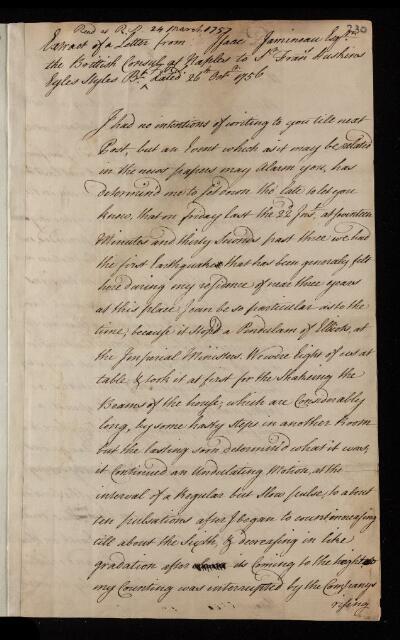 Read at R.S. 24 March 1757
230
Extract of a Letter from Isaac Jamineau Esqr.
the British Consul at Naples to Sr. Frans. Haskins
Eyles Styles Bt. dated 26th Octr. 1756
I had no intentions of writing to you till next
Post, but an Event which as it may be related
in the news papers may Alarm you, has
determined me to set down tho' late to let you
know, that on friday last the 22d Inst. at seventeen
Minutes and thirty Seconds past three we had
the first Earthquake that has been generaly felt
here during my residence of near three years
at this place; I can be so particular as to the
time, because it stop'd a Pendulum of Ellicots, at
the Imperial Ministers. We were Eight of us at
table & took it at first for the Shakeing the
Beams of the house, which are Considerably
long, by some hasty Steps in another Room
but the lasting soon determin'd what it was;
it Continued an Undulating Motion, at the
interval of a Regular but Slow pulse, to about
ten pulsations after I began to count increasing
till about the Sixth, & decreasing in like
gradation after its Coming to the height
my Counting was interrupted by the Companys
rising